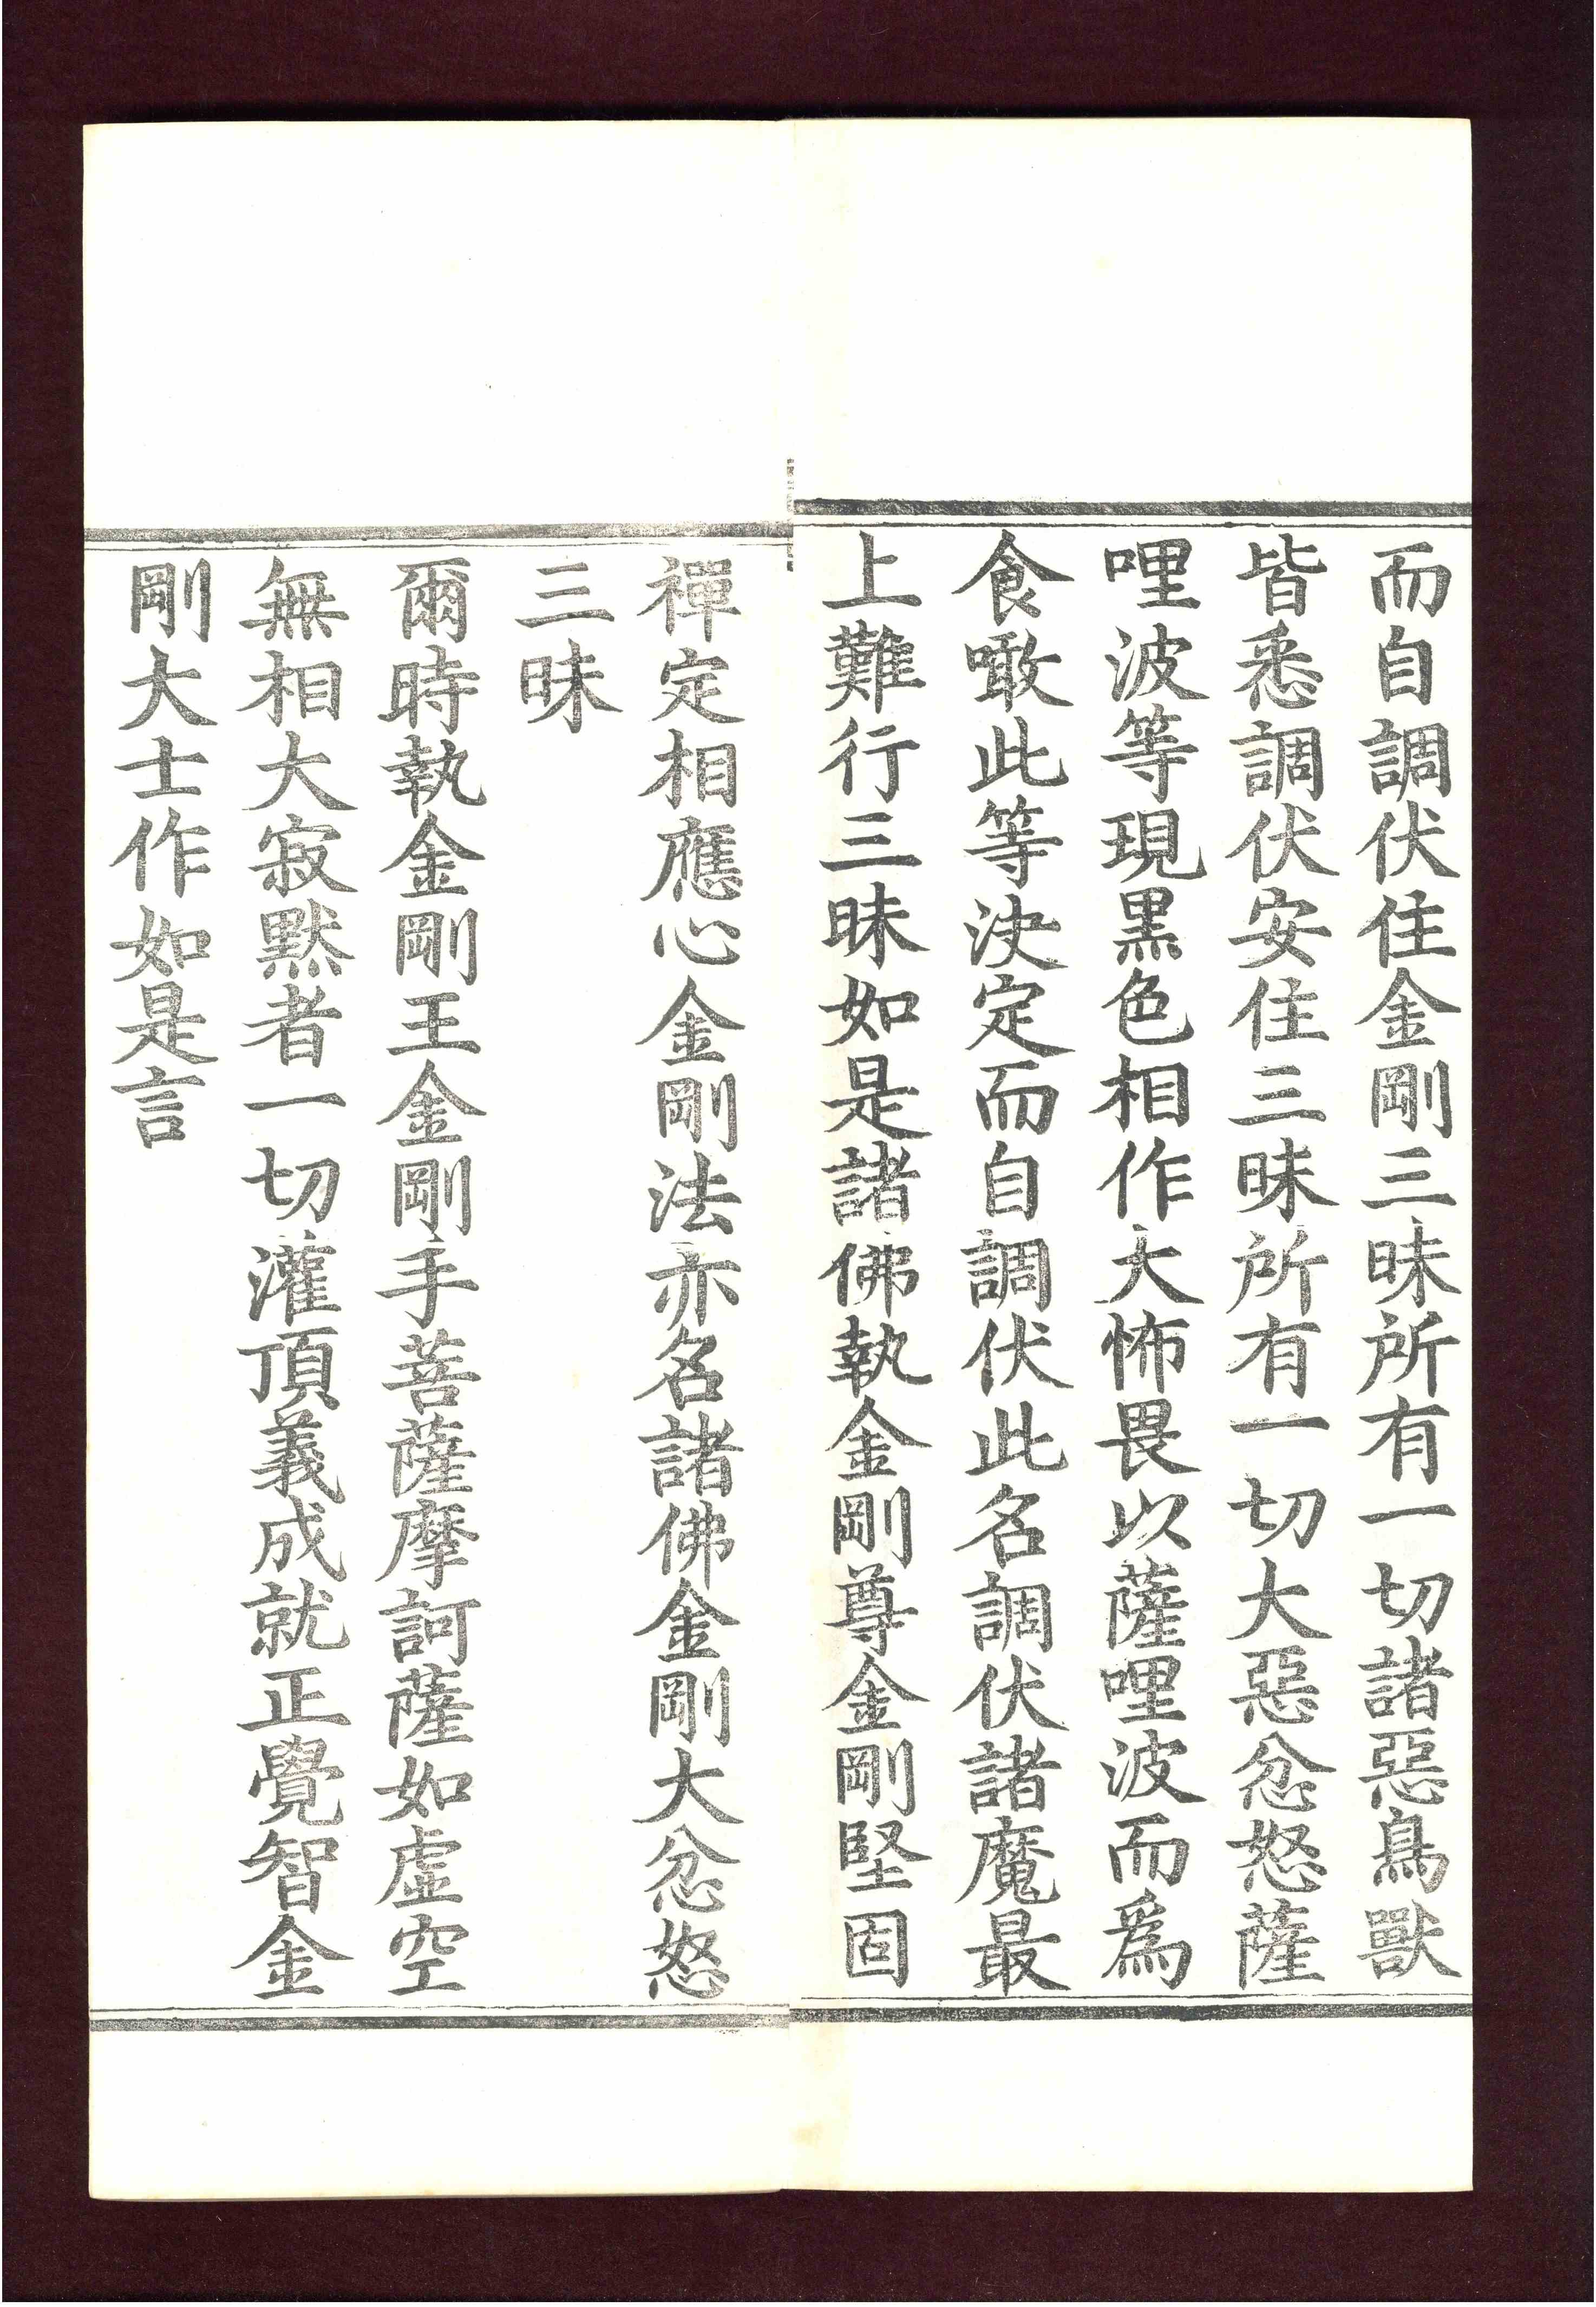 而自調伏住金剛三昧所有一切諸惡鳥獸
皆悉調伏安住三昧所有一切大惡忿怒薩
哩波等現黑色相作大怖畏以薩哩波而爲
食噉此等決定而自調伏此名調伏諸魔最
上難行三昧如是諸佛執金剛尊金剛堅固
禪定相應心金剛法亦名諸佛金剛大忿怒
三昧
爾時執金剛王金剛手菩薩摩訶薩如虛空
無相大寂默者一切灌頂義成就正覺智金
剛大士作如是言